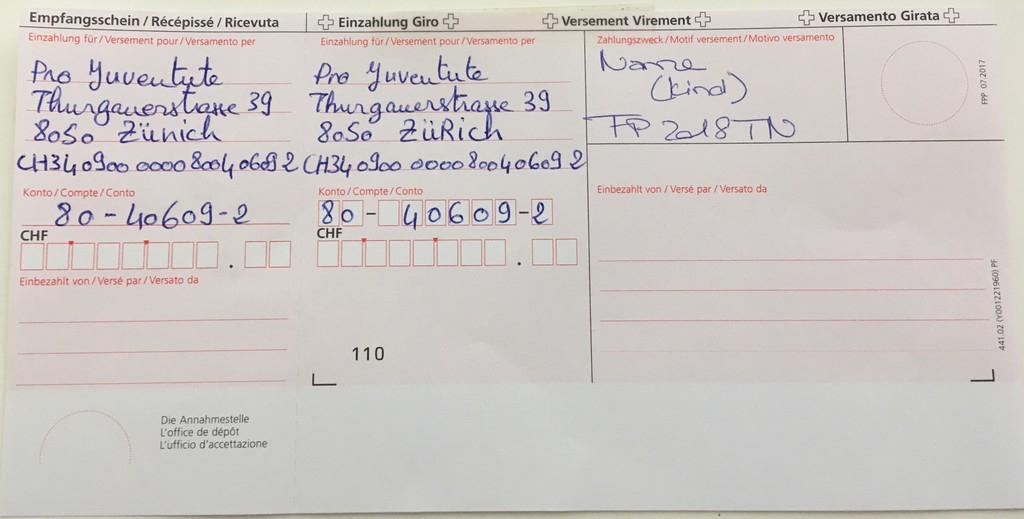 Empfangsschein / Récépissé / Ricevuta
Einzahlung für / Versement pour / Versamento per
Pro Juventute
Thurgauerstrasse 39
8050 Zürich
CH34 0900 0000 8004 0609 2
Konto / Compte / Conto
80-40609-2
CHF
.
Einbezahlt von / Versé par / Versato da
Die Annahmestelle
L'office de dépôt
L'ufficio d'accettazione
Einzahlung Giro
Versement Virement
Versamento Girata
Einzahlung für / Versement pour / Versamento per
Pro Juventute
Thurgauerstrasse 39
8050 ZüRich
CH34 0900 0000 8004 0609 2
Konto / Compte / Conto
80- 40609-2
CHF
.
110
Zahlungszweck / Motif versement / Motivo versamento
Name
(Kind)
FP 2018 TN
Einbezahlt von / Versé par / Versato da
FPP 07.2017
441.02 (Y001221960) PF